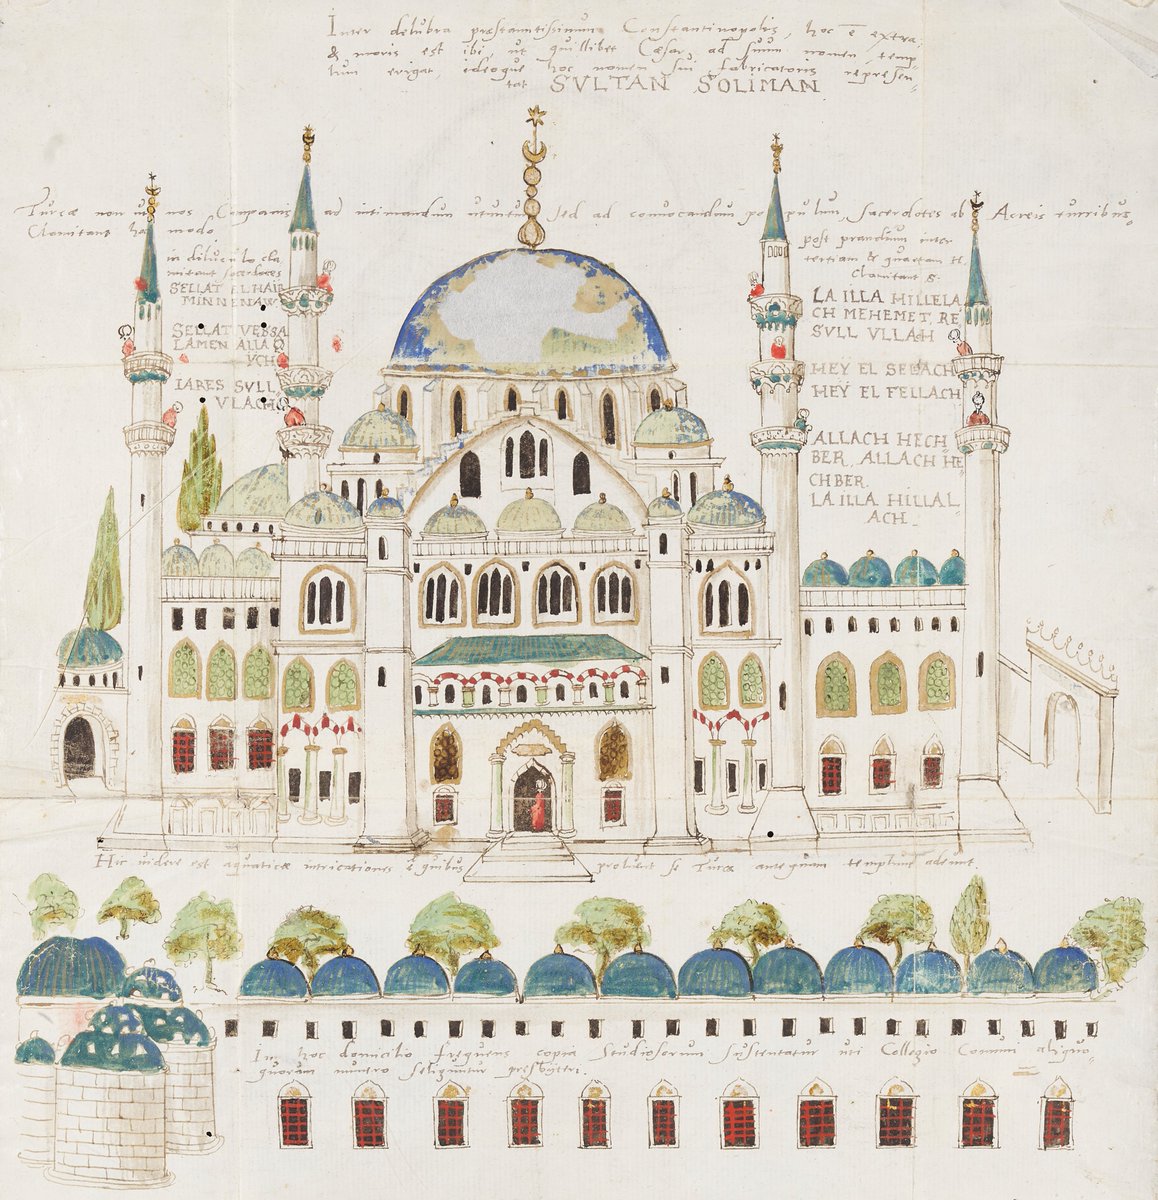 Inter delubra præstantissimum Constantinopolis, hoc ē extra,
& moris est ibi, ut quillibet Cæsar ad suum nomen, temp=
lum erigat, ideoque hoc nomen sui fabricatoris represen=
tat SVLTAN SOLIMAN
Turcæ non ut nos Companis ad intimandum utuntur sed ad convocandum populum, Sacerdotes ab Acreis turribus,
Clamitant hoc modo
in diluculo cla
mitant sacerdotes
SELLAT ELHAIR
MINNENAW
SELLAT VESSA
LAMEN ALLA
VCH
IARES SVLL
VLACH
post prandium inter
tertiam & quartam H.
Clamitant S:
LA ILLA HILLELA
CH MEHEMET, RE
SVLL VLLAH
HEY EL SELACH
HEY EL FELLACH
ALLACH HECH=
BER, ALLACH HE
CHBER.
LA ILLA HILLAL=
ACH.
Hic videre est aquaticæ intricationes è quibus proluent se Turcæ antequam templum adeunt
In hoc domicilio frequens copia Studiosorum sustentatur uti Collegio Comuni aliquo=
quorum numero seliguntur presbyteri.